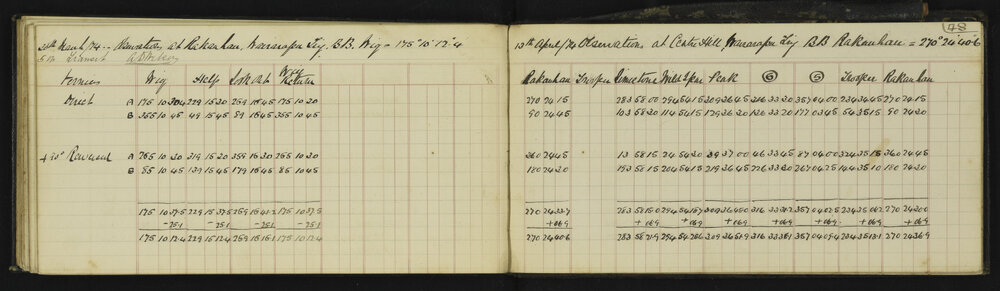 48
26th March/74. Observations at Rakanhau, Wararapa Trig. B.B. Wig = 175° 10' 12"4
5 in Transit
Terminus Wig Half 10k at Wig Return
Direct A 175 10 30 229 15 30 259 15 45 175 10 30
B 355 10 45 49 15 45 79 15 45 355 10 45
+ 90° Reversed A 265 10 30 319 15 30 359 15 30 265 10 30
B 85 10 45 139 15 45 179 15 45 85 10 45
175 10 37.5 229 15 37.5 259 15 41.2 175 10 37.5
-25.1 -25.1 -25.1 -25.1
175 10 12.4 229 15 12.4 259 15 16.1 175 10 12.4
13th April/74 Observations at Centre Hill Wararapa Trig BB Rakanhau = 270° 24' 40.6
Rakanhau Trooper Limestone Wild Spur Peak 6 5 Trooper Rakanhau
270 24 15 283 58 00 294 54 15 309 36 45 316 33 30 357 04 00 234 34 45 270 24 15
90 24 45 103 58 30 114 54 15 129 36 30 136 33 30 177 03 45 54 35 15 90 24 30
360 24 45 13 58 15 24 54 30 39 37 00 46 33 45 87 04 00 324 35 15 360 24 45
180 24 30 193 58 15 204 54 15 219 36 45 226 33 30 267 04 15 144 35 10 180 24 30
270 24 33.7 283 58 15.0 294 54 18.7 309 36 45.0 316 33 31.2 357 04 02.5 234 35 06.2 270 24 30.0
+06.9 +06.9 +06.9 +06.9 +06.9 +06.9 +06.9 +06.9
270 24 40.6 283 58 21.9 294 54 25.6 309 36 51.9 316 33 38.1 357 04 09.4 234 35 13.1 270 24 36.9